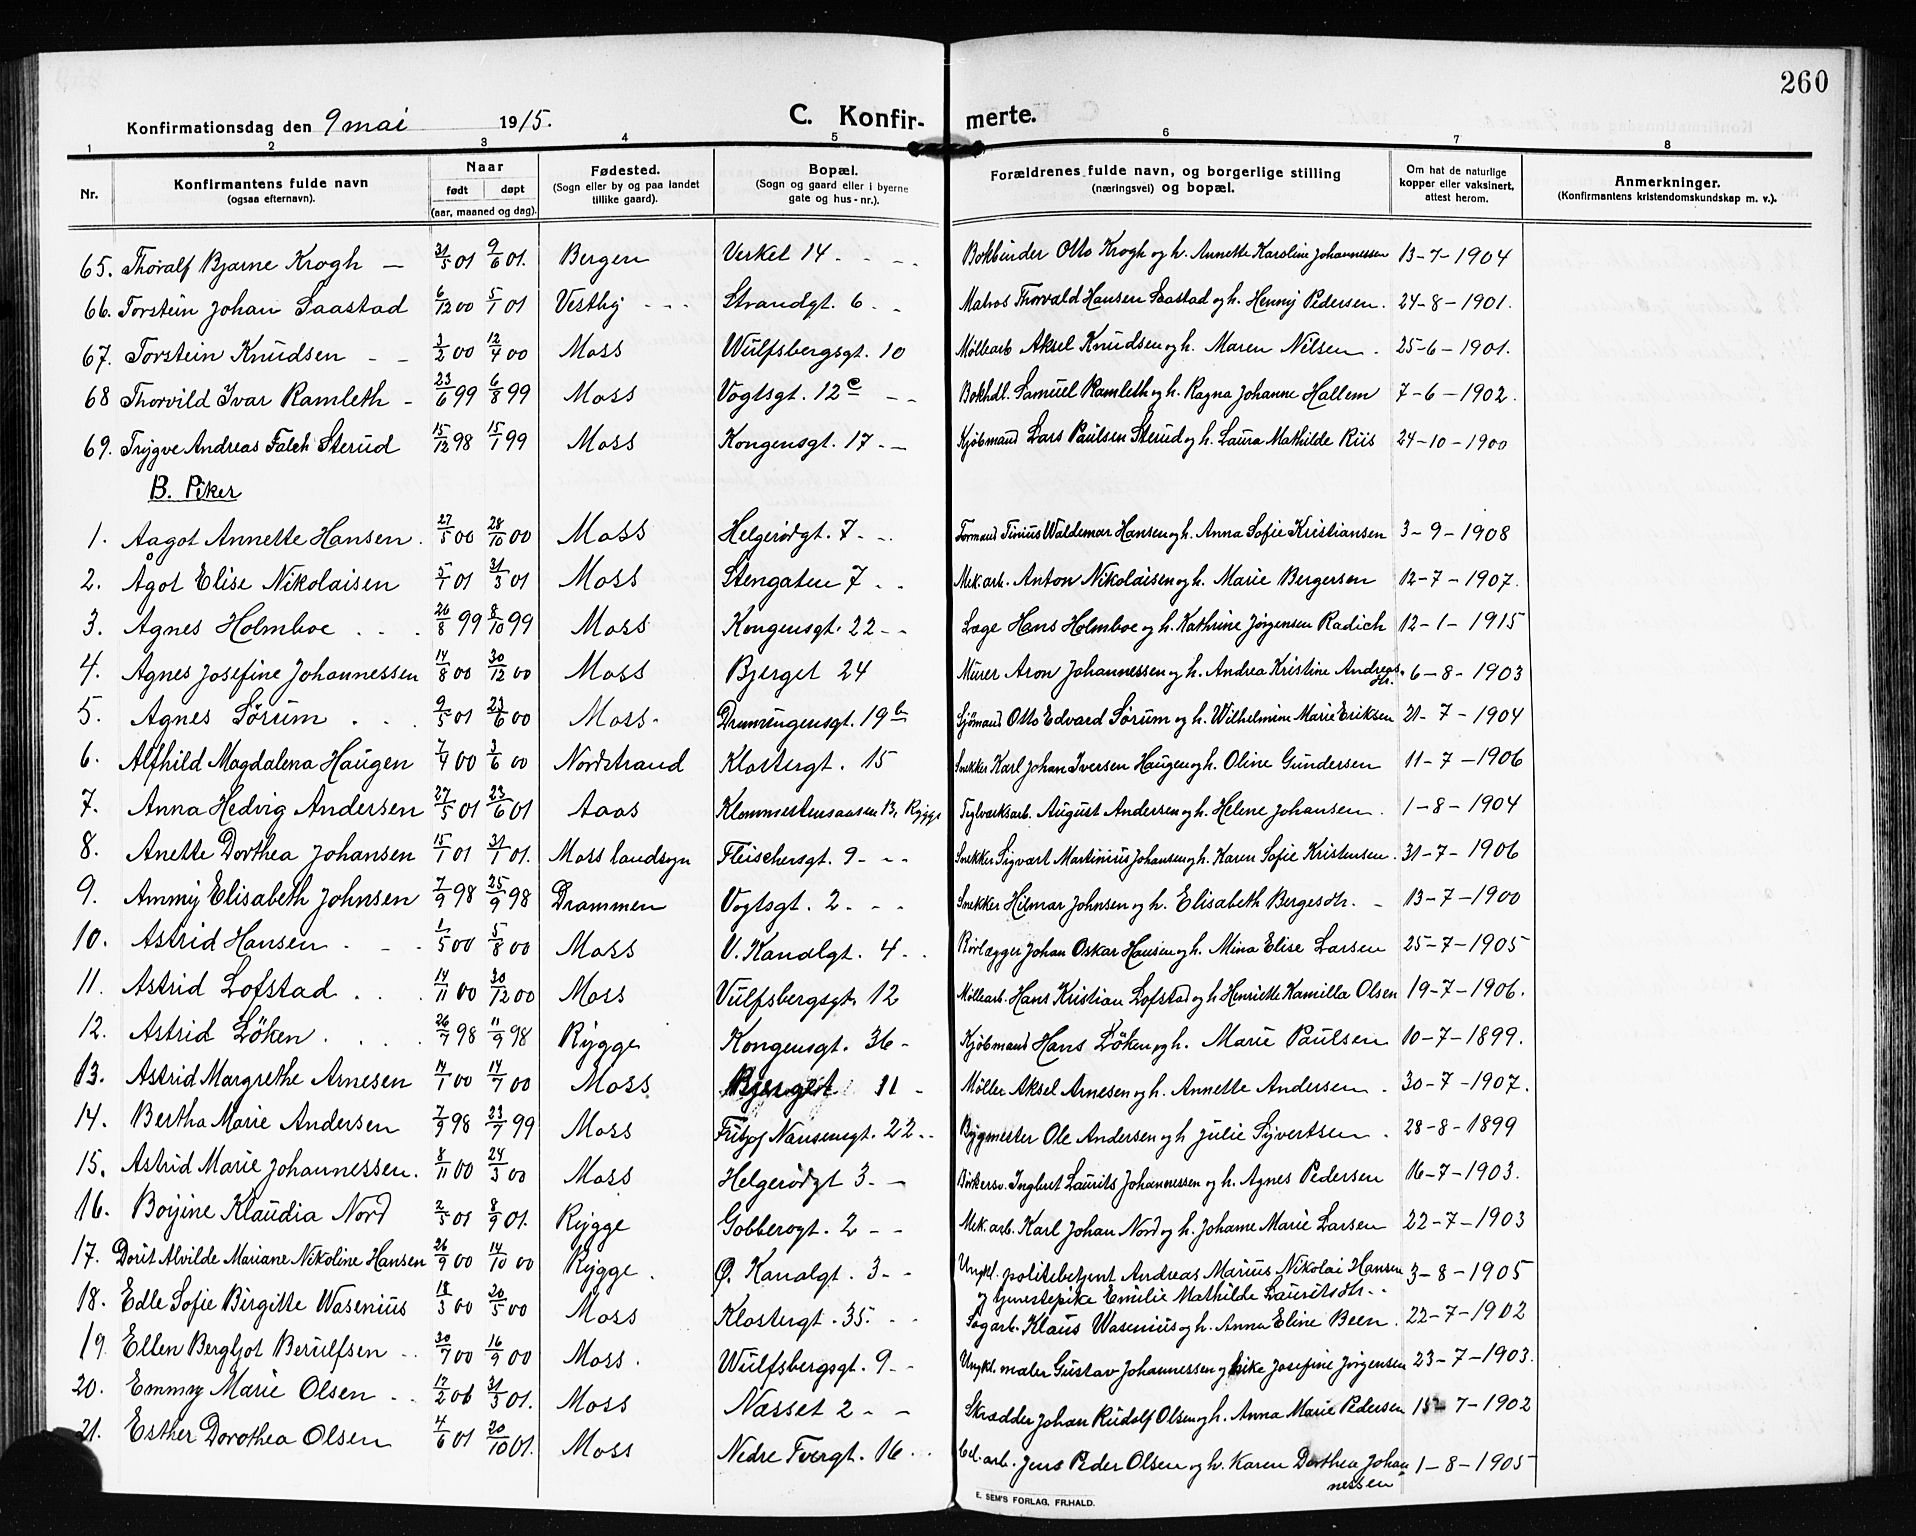 260
Konfirmationsdag den 9 mai 1915. C. Konfir- merte.
1 2 3 4 5 6 7 8
Nr. Konfirmantens fulde navn (ogsaa efternavn). Naar født døpt (aar, maaned og dag). Fødested. (Sogn eller by og paa landet tillike gaard). Bopæl. (Sogn og gaard eller i byerne gate og hus-nr.). Forældrenes fulde navn, og borgerlige stilling (næringsvei) og bopæl. Om hat de naturlige kopper eller vaksinert, attest herom. Anmerkninger. (Konfirmantens kristendomskundskap m. v.).
65. Thoralf Bjarne Krogh – 31/5 01 9/6 01. Bergen Verket 14 Bokbinder Otto Krogh og h. Annette Karoline Johannessen 13-7-1904
66. Torstein Johan Saastad 6/12 00 5/1 01 Vestby Strandgt. 6 Matros Thorvald Hansen Saastad og h. Henny Pedersen. 24-8-1901.
67. Torstein Knudsen 3/2 00 12/4 00 Moss Wulfsbergsgt. 10 Møllearb. Aksel Knudsen og h. Maren Nilsen. 25-6-1901.
68 Thorvild Ivar Ramleth 23/6 99 6/8 99 Moss Vogtsgt. 12c Bokhdl. Samuel Ramleth og h. Ragna Johanne Hallem 7-6-1902.
69. Trygve Andreas Falch Sterud 15/12 98 15/1 99 Moss Kongensgt. 17 Kjøbmand Lars Paulsen Sterud og h. Laura Mathilde Riis 24-10-1900
B. Piker
1. Aagot Annette Hansen. 27/5 00 28/10 00 Moss Helgerødgt. 7 Formand Tinius Waldemar Hansen og h. Anna Sofie Kristiansen 3-9-1908
2. Ågot Elise Nikolaisen 5/1 01 31/3 01 Moss Stengaten 7 Mek.arb. Anton Nikolaisen og h. Marie Bergersen 12-7-1907.
3. Agnes Holmboe 26/8 99 8/10 99 Moss Kongensgt. 22 Læge Hans Holmboe og h. Kathrine Jørgensen Radich 12-1-1915
4. Agnes Josefine Johannessen 14/8 00 30/12 00 Moss Bjerget 24 Murer Aron Johannessen og h. Andrea Kristine Andreas- 6-8-1903
dtr.
5. Agnes Sørum 9/5 01 23/6 00 Moss Dronningensgt. 19b Sjømand Otto Edvard Sørum og h. Wilhelmine Marie Eriksen 21-7-1904
6. Alfhild Magdalena Haugen 7/4 00 3/6 00 Nordstrand Klostergt. 15 Snekker Karl Johan Iversen Haugen og h. Oline Gundersen 11-7-1906
7. Anna Hedvig Andersen 27/5 01 23/6 01 Aaas Klommestensaasen 13, Rygge Teglverksarb. August Andersen og h. Helene Johansen. 1-8-1904
8. Anette Dorthea Johansen 15/1 01 31/1 01. Moss landsogn Fleischersgt. 9 Snekker Sigvart Martinius Johansen og h. Karen Sofie Kristensen. 31-7-1906
9. Ammy Elisabeth Johnsen 7/9 98 25/9 98 Drammen Vogtsgt. 2 Snekker Hilmar Johnsen og h. Elisabeth Bergesdtr. 13-7-1900
10. Astrid Hansen 1/5 00 5/8 00 Moss V. Kanalgt. 4 Rørlægger Johan Oskar Hansen og h. Mina Elise Larsen 25-7-1905
11. Astrid Lofstad 14/11 00 30/12 00 Moss Vulfsbergsgt. 12 Møllearb. Hans Kristian Lofstad og h Henriette Kamilla Olsen 19-7-1906.
12. Astrid Løken 26/7 98 11/9 98 Rygge Kongensgt. 36 Kjøbmand Hans Løken og h. Marie Paulsen 10-7-1899.
13. Astrid Margrethe Arnesen 14/1 00 14/7 00 Moss Bjerget 11 Møller Aksel Arnesen og h. Annette Andersen. 30-7-1907.
14. Bertha Marie Andersen 7/9 98 23/7 99 Moss Fritjof Nansensgt. 22 Bygmester Ole Andersen og h Julie Syvertsen. 28-8-1899
15. Astrid Marie Johannessen. 8/11 00 24/3 00 Moss Helgerødgt 3 Ingbret Laurits Johannessen og h. Agnes Pedersen 16-7-1903.
16. Boyine Klaudia Nord 2/5 01 8/9 01. Rygge Gobberogt. 2 Mek.arb. Karl Johan Nord og h. Johanne Marie Larsen 22-7-1903
17. Dorit Alvilde Mariane Nikoline Hansen 26/9 00 14/10 00 Rygge. Ø. Kanalgt. 3 Ungkl. politibetjent Andreas Marius Nikolai Hansen 3-8-1905
og tjenestepike Emilie Mathilde Lauritsdtr.
18. Edle Sofie Birgitte Wasenius 18/3 00 20/5 00 Moss Klostergt. 35. Sagarb. Klaus Wasenius og h. Anna Eline Been. 22-7-1902
19 Ellen Bergljot Berulfsen 30/7 00 16/9 00 Moss. Wulfsbergsgt. 9 Ungkl. maler Gustav Johannessen og pike Josefine Jørgensen 23-7-1903.
20. Emmy Marie Olsen 17/2 06 31/3 01. Moss Næsset 2 Skrædder Johan Rudolf Olsen og h. Anna Marie Pedersen 15 7-1902
21. Esther Dorothea Olsen 4/6 01 20/10 01. Moss Nedre Tvergt. 16 Cel.arb. Jens Peder Olsen og h. Karen Dorthea Johan- 1-8-1905
nessen
E. SEM'S FORLAG, FR.HALD.